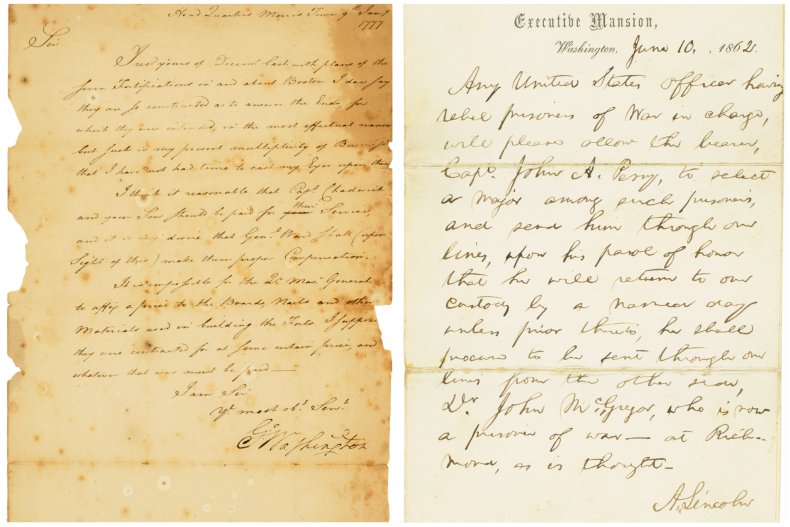 Head Quarters Morris Town 9th Jany
1777
Sir
I recd yours of Decemr last with plans of the
seven Fortifications in and about Boston. I dare say
they are so constructed as to answer the Ends, for
which they are intended, in the most effectual manner
but such is my present multiplicity of Business
that I have not had time to cast my Eyes upon them
I think it reasonable that Capt. Chadwick
and your Son should be paid for their Services,
and it is my desire that Genl Ward shall (upon
Sight of this) make them proper Compensation.
It is impossible for the Qr Mas. General
to affix a price to the Boards, Nails and other
Materials used in building the Forts. I suppose
they were contracted for a some certain price, and
whatever that was must be paid—
I am Sir
Yr most obt Servt
Go Washington
Executive Mansion,
Washington, June 10, , 1862.
Any United States officer having
rebel prisoners of War in charge,
will please allow the bearer,
Capt. John A. Perry, to select
a Major among such prisoners,
and send him through our
lines, upon his parol of honor
that he will return to our
custody by a named day
unless prior thereto, he shall
procure to be sent through our
lines from the other side,
Dr. John McGregor, who is now
a prisoner of war— at Rich-
mond, as is thought—
A. Lincoln